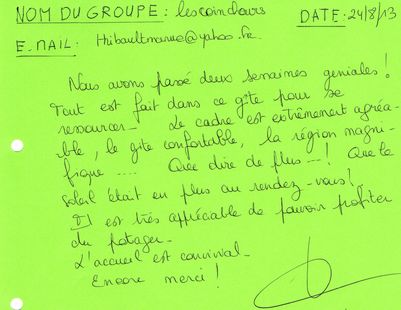 NOM DU GROUPE : les coinchours DATE : 24/8/13
E.MAIL : thibaultmarue@yahoo.fr
Nous avons passé deux semaines geniales !
Tout est fait dans ce gîte pour se
ressourcer. Le cadre est extrêmement agréa-
ble, le gîte confortable, la région magni-
fique .... Que dire de plus ---! Que le
soleil était en plus au rendez-vous !
Il est très appréciable de pouvoir profiter
du potager.
L'accueil est convivial.
Encore merci !